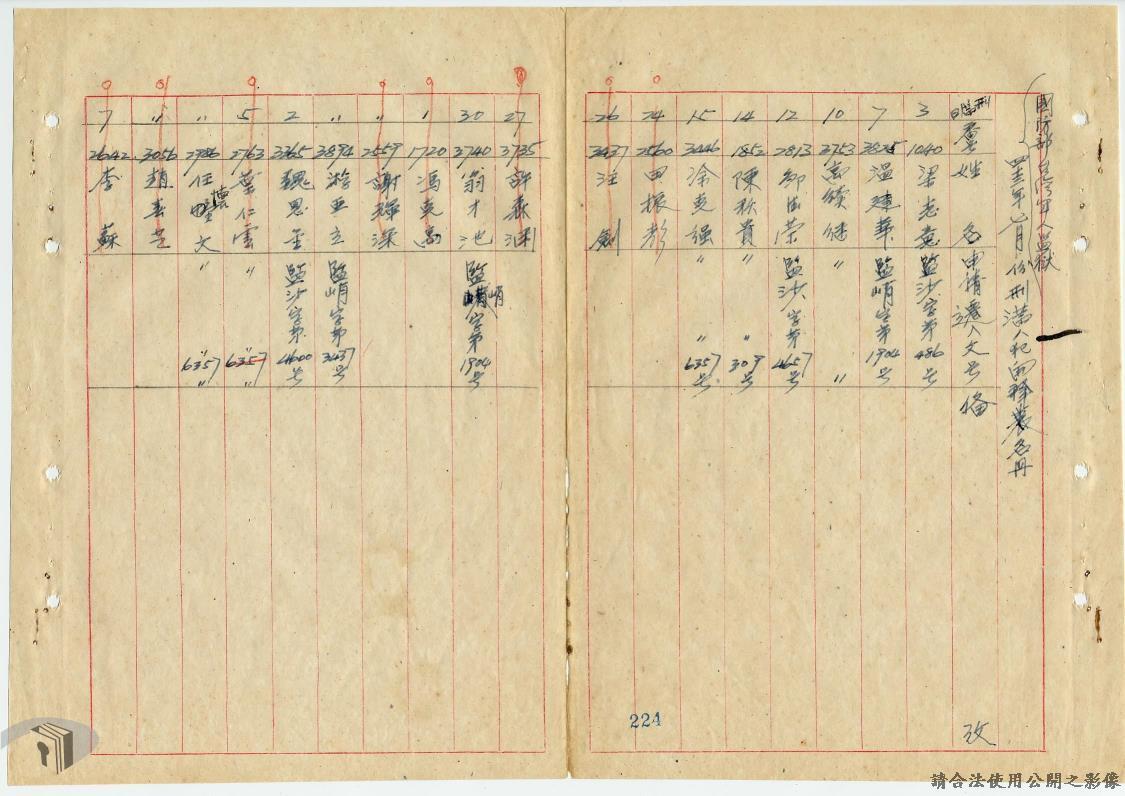 國防部臺灣軍人監獄
四十三年七月份刑滿人犯開釋農名冊
刑期 番 姓名 申請遷入文号 備 攷
3 1040 梁志 監沙字第486号
7 3825 溫建華 監峭字第1904号
10 3753 高續继 〃 〃
12 2813 鄒由榮 監沙字第4657号
14 1852 陳秋貴 〃 〃 309号
15 3446 涂克强 〃 〃 6357号
24 2560 田振
26 3437 汪劍
27 3735 許森
30 3740 翁才池 監峭字第1904号
1 1720 馮
〃 2559 謝
〃 3894 游亚立 監峭字第3437号
2 3365 魏思 監沙字第4600号
5 2763 葉仁雲 〃 6357 〃
〃 2986 任懷文 〃 〃 6357 〃
〃 3056 趙
7 2642 李蘇
224
請合法使用公開之影像